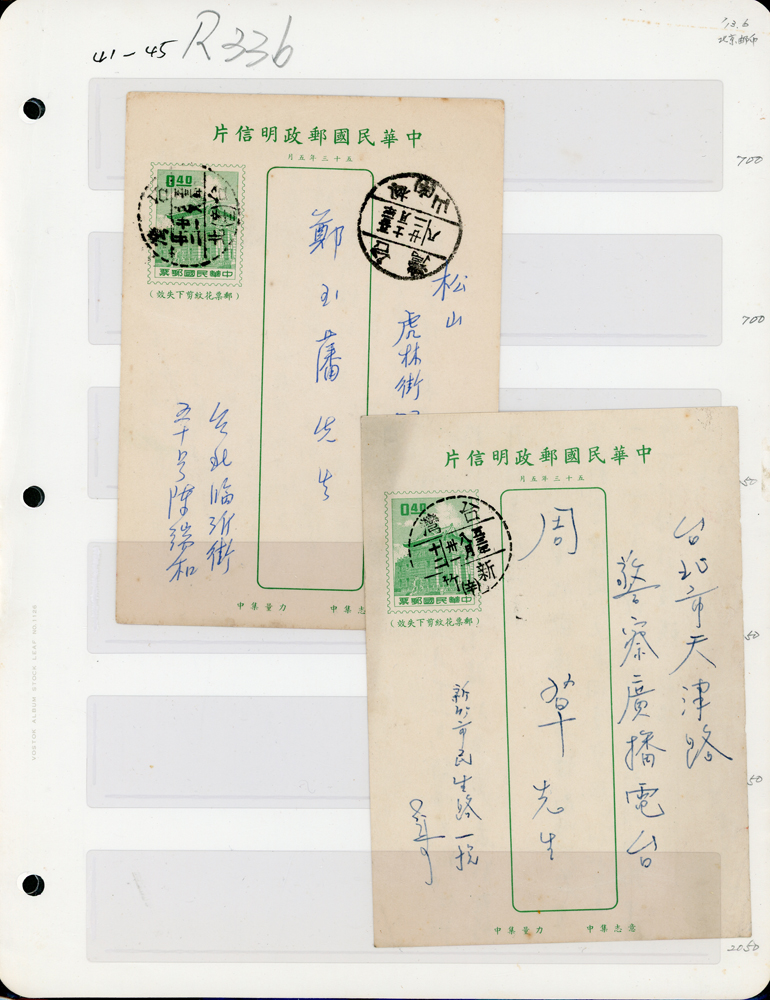 41-45 R336
13.6
北京郵局
700
700
50
50
50
2050
VOSTOK ALBUM STOCK LEAF NO.1166
片信明政郵國民華中
月五年三十五
0.40
票郵國民華中
(郵票花紋剪下失效)
台灣
台北
台灣
松山
松山
虎林街
鄭玉藩先生
台北臨沂街
五十号陳瑞和
中集量力
中集志
片信明政郵國民華中
月五年三十五
0.40
票郵國民華中
(郵票花紋剪下失效)
台灣
新竹
台北市天津路
警察廣播電台
周 先生
新竹市民生路一
中集量力
中集志意